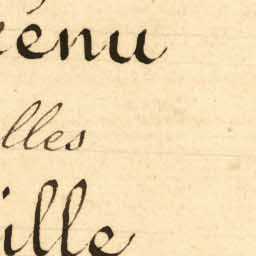 énu
lles
ille